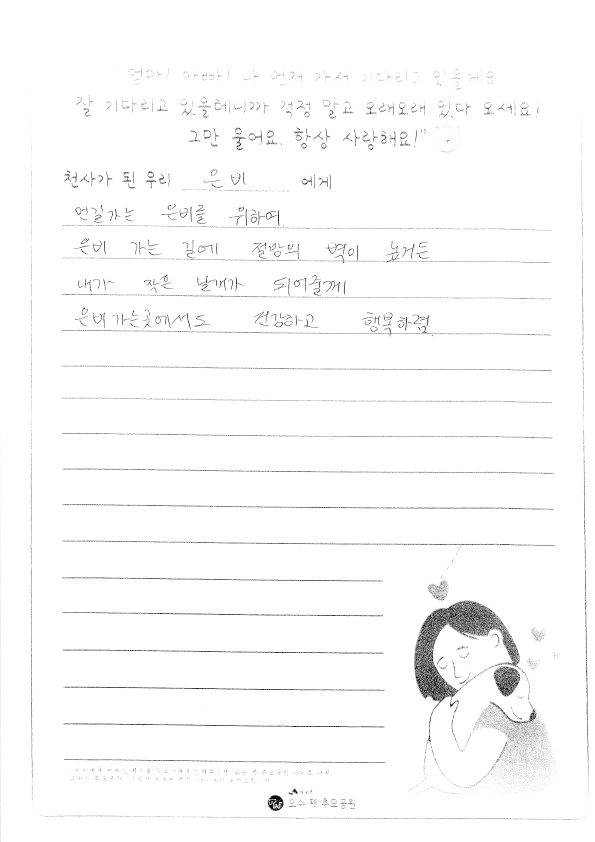 "엄마! 아빠! 나 먼저 가서 기다리고 있을게요
잘 기다리고 있을테니까 걱정 말고 오래오래 있다 오세요!
그만 울어요. 항상 사랑해요!"
천사가 된 우리 은비 에게
먼길가는 은비를 위하여
은비 가는 길에 절망의 벽이 높거든
내가 작은 날개가 되어줄께
은비 가는곳에서도 건강하고 행복하렴.
오수 펫 추모공원